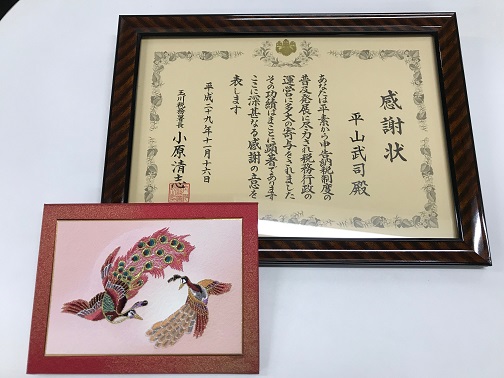 感謝状
平山武司殿
あなたは平素から申告納税制度の
普及発展に尽力され税務行政の
運営に多大の寄与をされました
その功績はまことに顕著であります
ここに深甚なる感謝の意を
表します
平成二十九年十一月十六日
玉川税務署長 小原清志